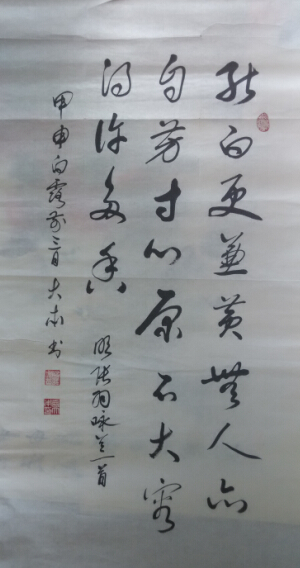 能白更兼黄無人亦
自芳寸心原不大容
得许多香
明张羽咏兰一首
甲申白露前三日大书